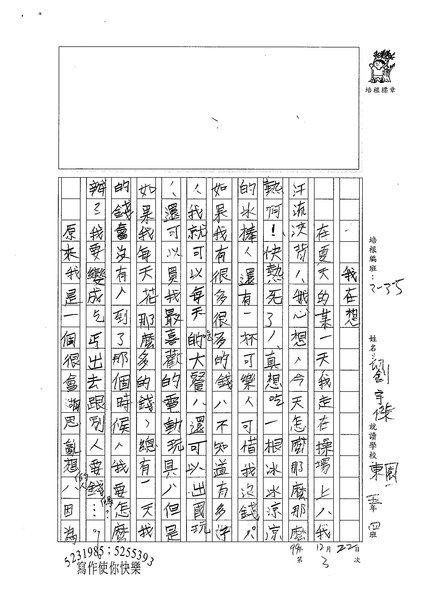 培根標章
培根編班：2-35
姓名：劉宇傑
就讀學校 東園
五年四班
99年12月22日
第3次
我在想
在夏天的某一天我走在操場上，我
汗流浹背，我心想，今天怎麼那麼那麼
熱啊！快熱死了，真想吃一根冰冰涼涼
的冰棒，還有一杯可樂，可惜我沒錢。
如果我有很多很多的錢，不知道有多好
，我就可以每天吃大餐，還可以出國玩
，還可以買我最喜歡的電動玩具，但是
如果我每天花那麼多的錢，總有一天我
的錢會沒有，到了那個時候，我要怎麼
辦？我要變成乞丐出去跟別人要錢嗎…。
原來我是一個很會胡思亂想，因為
5231985；5255393
寫作使你快樂